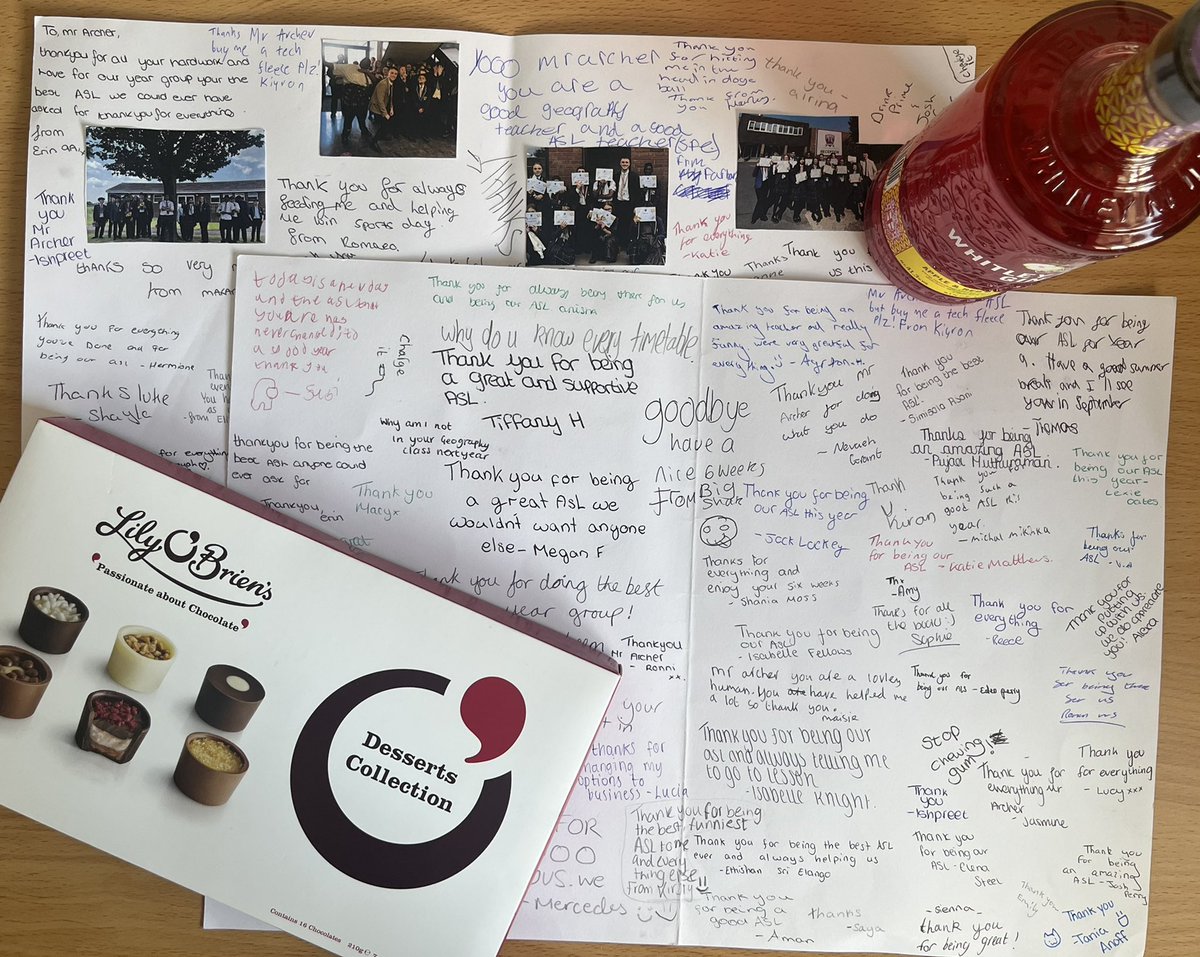 To, mr Archer,
thankyou for all your hardwork and
have for our year group your the
best ASL we could ever have
asked for thankyou for everything.
from
Erin
Thanks Mr Archer
buy me a tech
fleece Plz!
Kiyron
Yooo mr archer
you are a
good geography
teacher and a good
ASL teacher (sfe)
from
Thank you
for hitting
me in the
head in doge
ball
Thank you from
thank you -
Drink
Prime
Josh
Thank
you
Mr
Archer
-Ishpreet
Thank you for always
feeding me and helping
me win sports day.
from Romaea
Thank you
for everything
-Katie
Thank you
us this
thanks so very
from
Thank you for everything
you've Done and for
being our asl - Hermione
Thanks luke
-Shayla
for everything
WHITL
APPLE &
today is a nur day
and the asl that
you are has
never
a good year
thank you
Thank you for always being there for us,
and being our ASL anisha
why do u know every timetable
Charge
it
Thank you for being
a great and supportive
ASL.
Tiffany H
Why am i not
in your Geography
class next year
thankyou for being the
best ASL anyone could
ever ask for
Thankyou,
erin
Thank you
Maryx
great
Thank you for being
a great ASL we
wouldnt want anyone
else - Megan F
goodbye
have a
nice 6 weeks
From Big
Shark
Thank you for doing the best
year group!
Thankyou
Mr Archer
- Ronni
xx.
your
in
thanks for
changing my
options to
business - Lucia
FOR
OO
OUS. we
- Mercedes
Thank you for being
the best, funniest
ASL to me
and every
thing else
from Kirsty
Thank you for being an
amazing teacher and really
funny were very greatful for
everything - Ayrton.H.
Mr Archer ASL
but buy me a tech fleece
Plz! From Kiyron
Thank you for being
our ASL for Year
9. Have a good summer
break and I'll see
you in September
- Thomas
Thankyou mr
Archer for doing
what you do
- Nevaeh
Grant
Thank you
for being the best
ASL!
- Simisola Asani
Thanks for being
an amazing ASL
- Pujaa Muthuraman.
Thank you for
being our ASL
this year -
Lexie
Oates
Thank you for being
our ASL this year
- Jack Lackey
Thank
Kiran
Thank you
being such a
good ASL this
year.
- michal mikinka
Thankyou
for being our
ASL - Katie Matthews.
Thanks for
being our
ASL -
Thanks for
everything and
enjoy your six weeks
- Shania Moss
Thx
- Amy
Thank you for being
our ASL
- Isabelle Fellows
Thanks for all
the
Sophie
Thank you for
everything
-Reece
Thank you for
putting
up with us
we do appreciate
you! Alexa
mr archer you are a lovley
human. You have helped me
a lot so thank you.
maisie
Thank you for
being our ASL -
Thank you
for being there
for us
Thank you for being our
asl and always telling me
to go to lesson
- Isabelle Knight.
Stop
chewing
gum!
Thank
you
-Ishpreet
Thank you for
everything Mr
Archer
- Jasmine
Thank you
for everything
- Lucy xxx
Thank you for being the best ASL
ever and always helping us
- Ethishan Sri Elango
Thank you
for being our
ASL - Elena
Steel
Thank you
for being
an amazing
ASL - Josh
Perry
Thank you
for being a
good ASL
- Aman
thanks
- Saya
- senna -
thank you
for being great!
Thank you
Emily
Thank you
-Tania
Anoff
Lily O'Brien's
'Passionate about Chocolate'
Desserts
Collection
Contains 16 Chocolates 210g